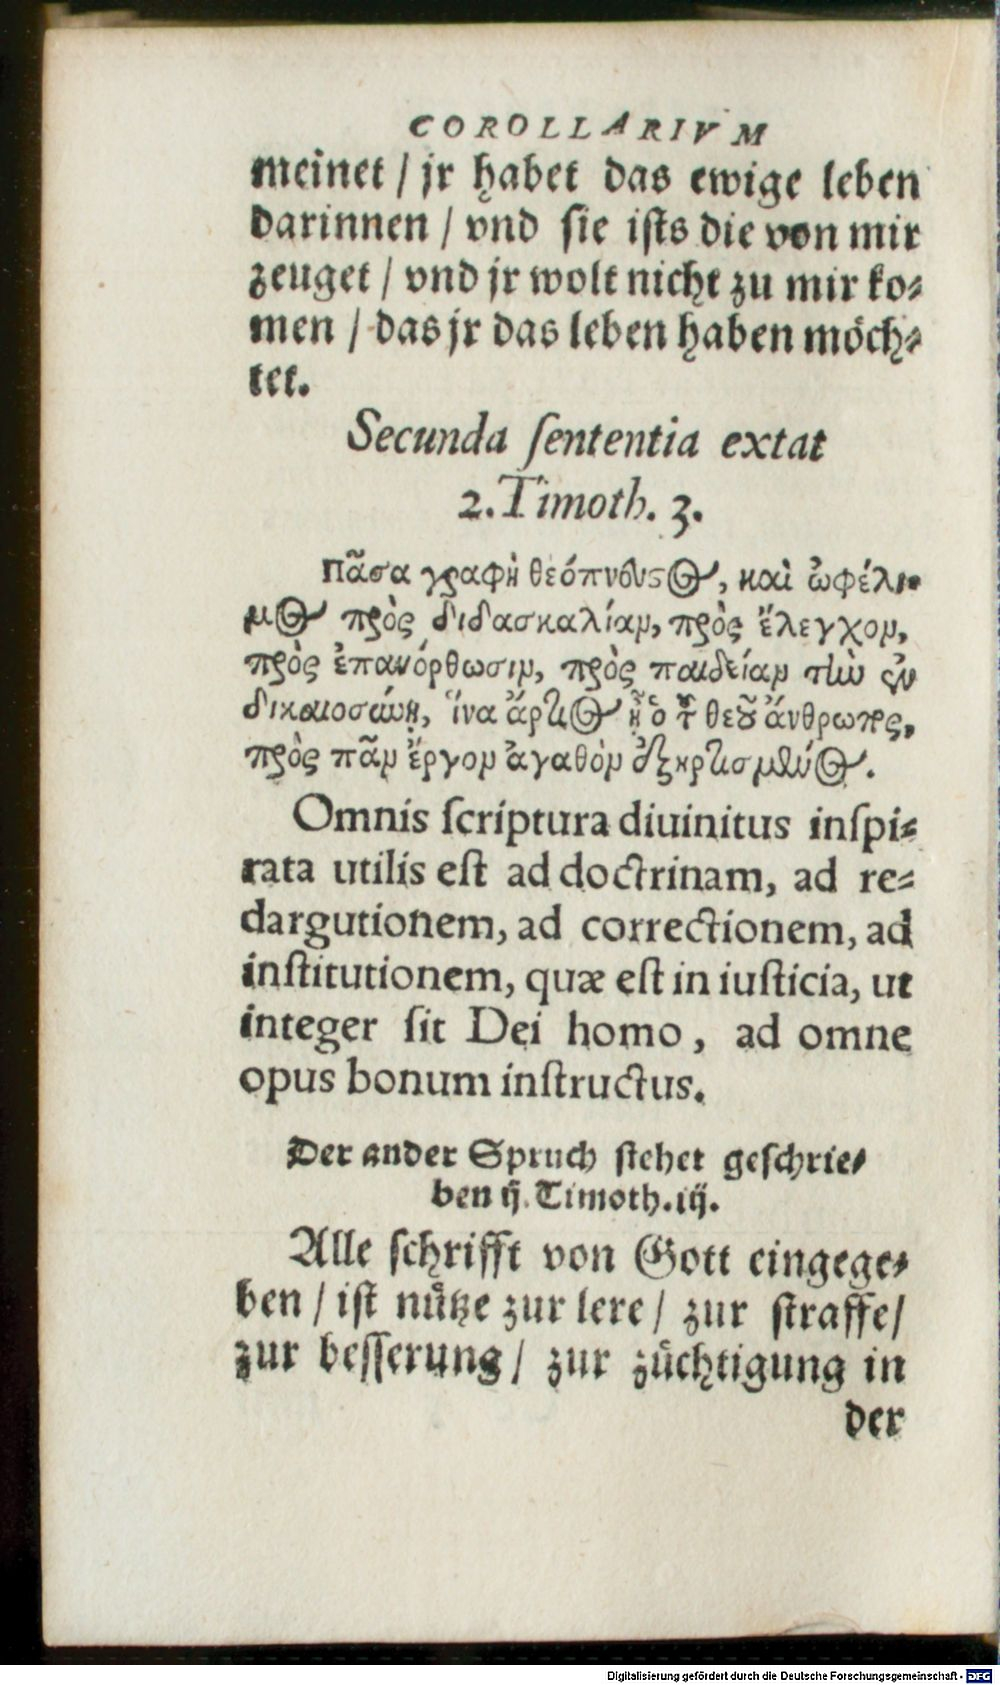 COROLLARIVM
meinet / jr habet das ewige leben
darinnen / vnd sie ists die von mir
zeuget / vnd jr wolt nicht zu mir ko⸗
men / das jr das leben haben möch⸗
tet.
Secunda ſententia extat
2. Timoth. 3.
Πᾶσα γραφὴ θεόπνευστος, καὶ ὠφέλι-
μος πρὸς διδασκαλίαν, πρὸς ἔλεγχον,
πρὸς ἐπανόρθωσιν, πρὸς παιδείαν τὴν ἐν
δικαιοσύνῃ, ἵνα ἄρτιος ᾖ ὁ τοῦ θεοῦ ἄνθρωπος,
πρὸς πᾶν ἔργον ἀγαθὸν ἐξηρτισμένος.
Omnis ſcriptura diuinitus inſpi⸗
rata utilis eſt ad doctrinam, ad re⸗
dargutionem, ad correctionem, ad
inſtitutionem, quæ eſt in iuſticia, ut
integer ſit Dei homo, ad omne
opus bonum inſtructus.
Der ander Spruch ſtehet geſchrie⸗
ben ij. Timoth. iij.
Alle ſchrifft von Gott eingege⸗
ben / iſt nuͤtze zur lere / zur ſtraffe /
zur beſſerung / zur zuͤchtigung in
der
Digitalisierung gefördert durch die Deutsche Forschungsgemeinschaft - DFG